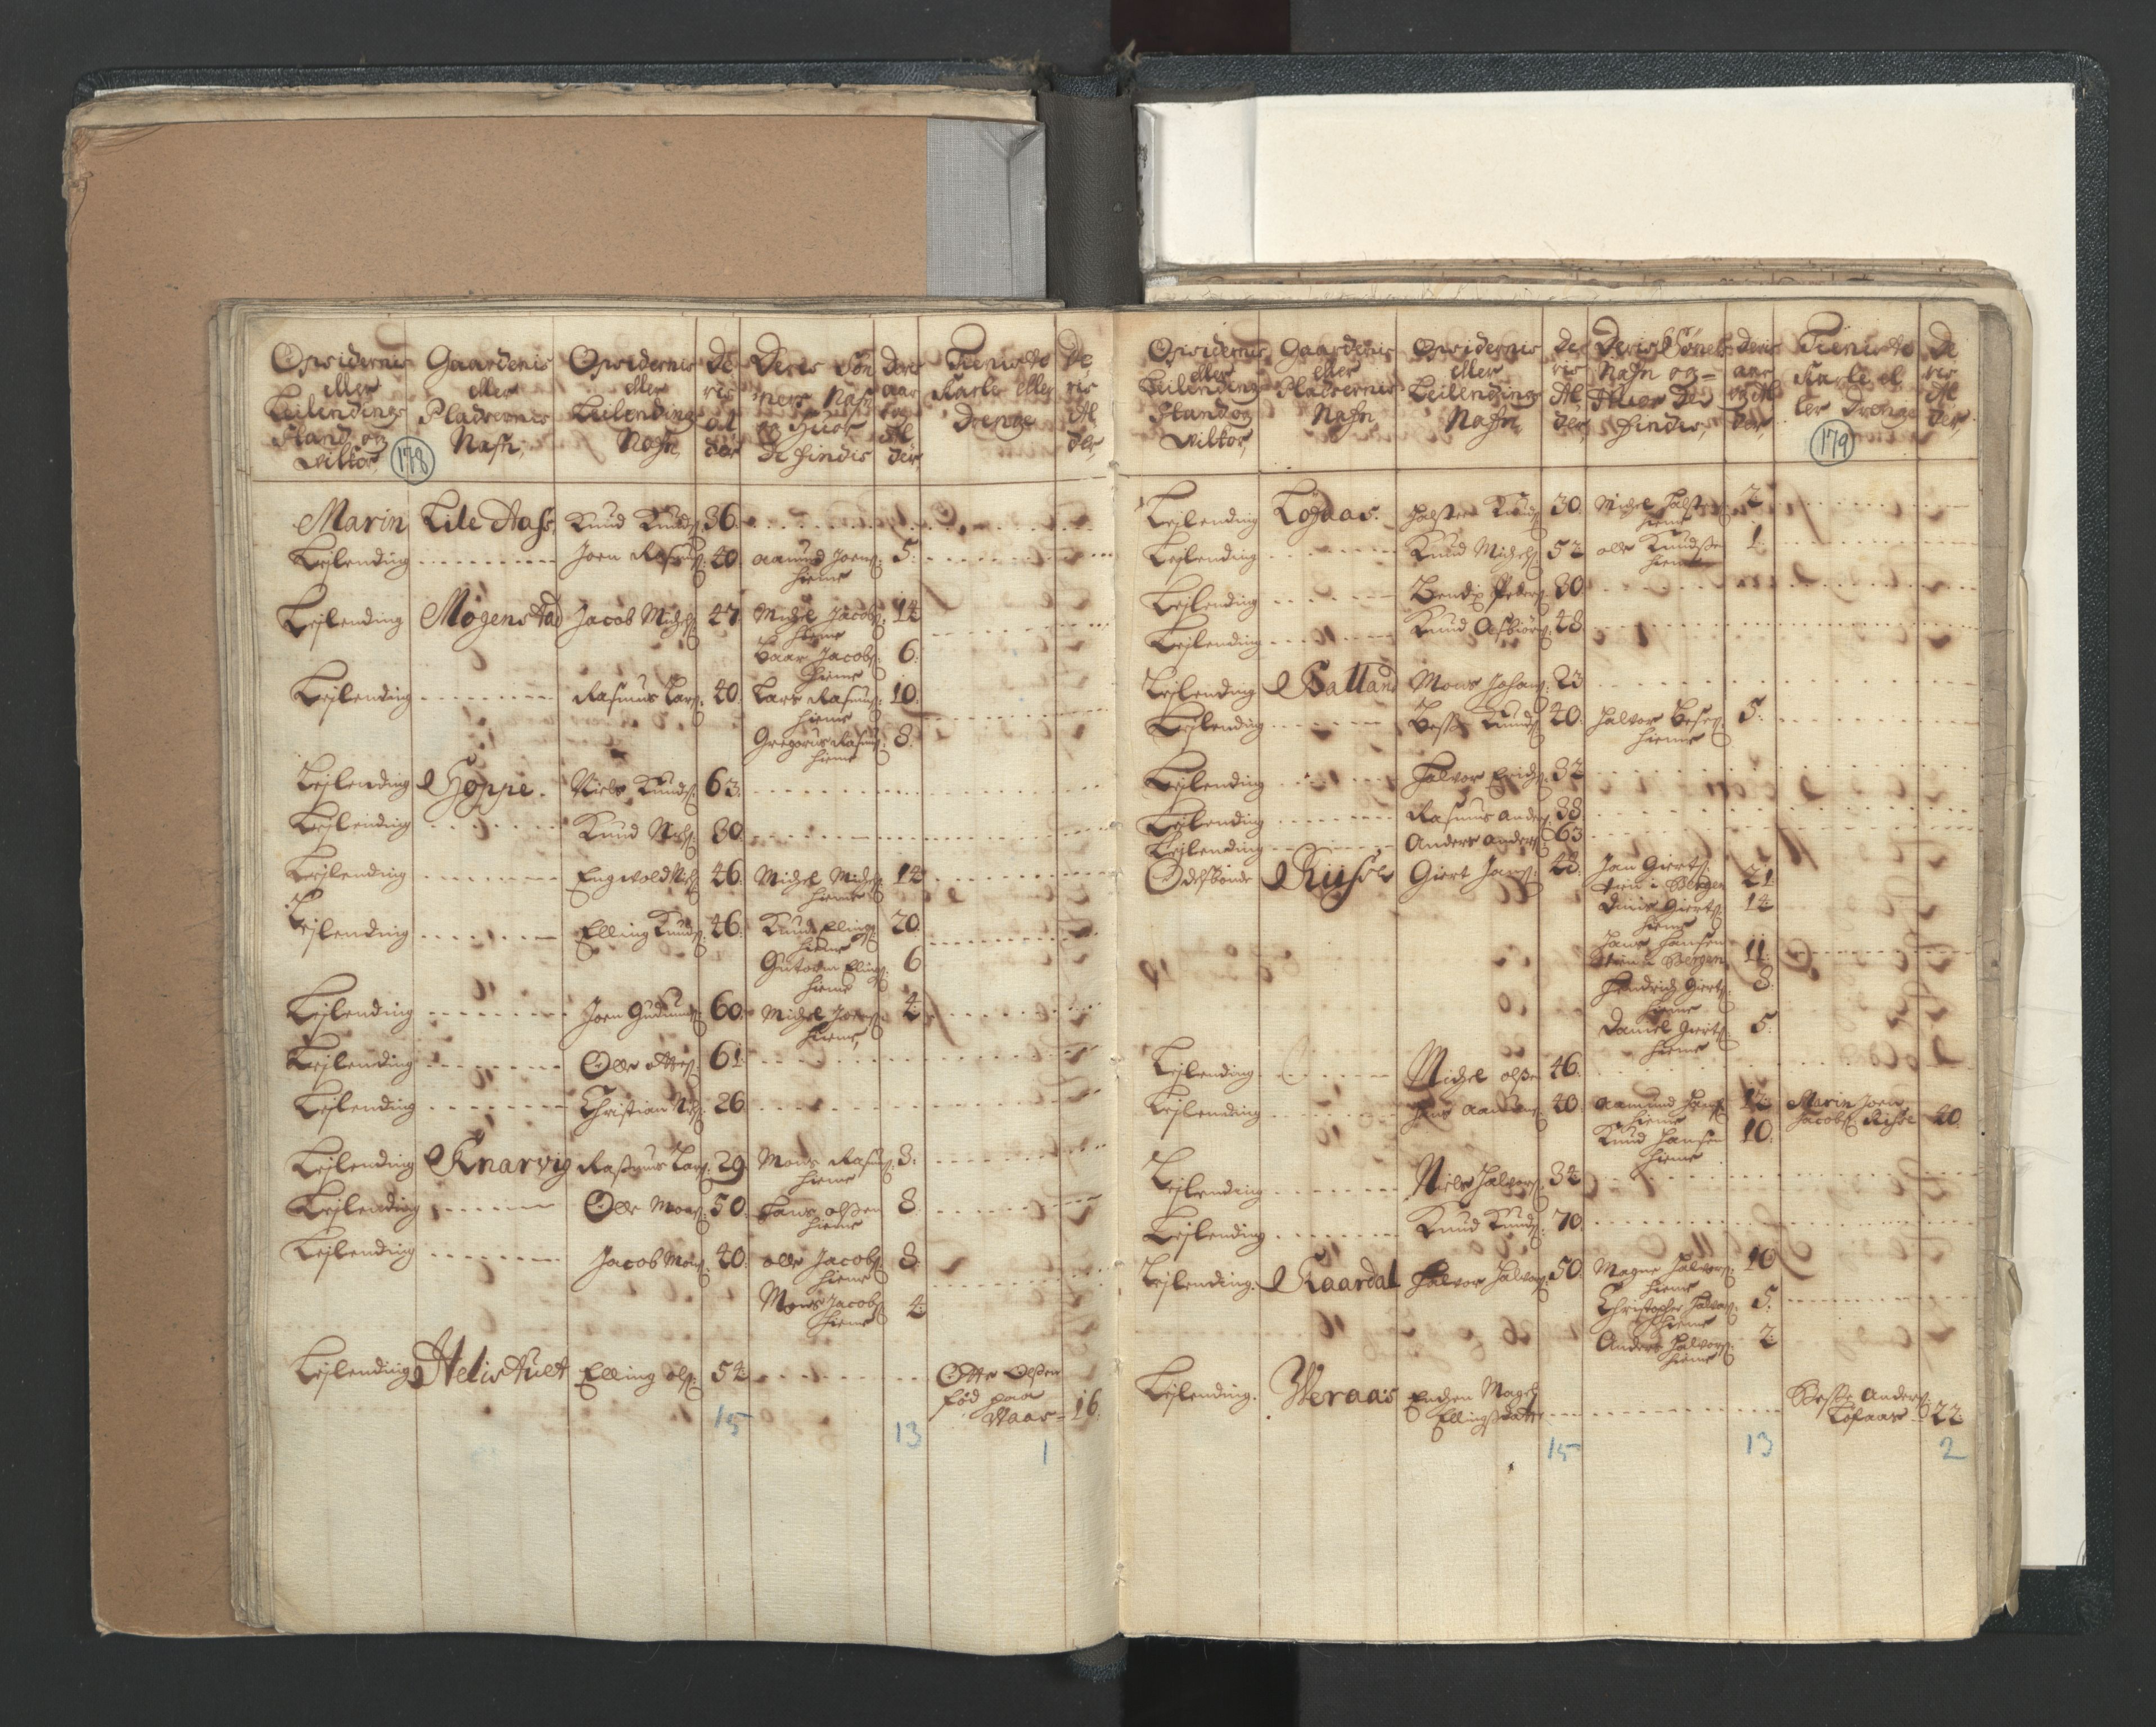 Opsidernis eller Leilendings Stand og vilkor,
178
Gaardenis eller Pladsernes Nafn,
Opsidernis eller Leilendings Nafn,
De ris al der
Deris Søn ners Nafn og Huor de findis
Deris aar og Al der
Tieniste Karle eller Drenge
De ris Al der,
Marin Lile Aass Knud Knuds: 36.
Lejlending Joen Rasmus: 40. Aamund Joens: 5.
hieme
Lejlending Mogenstad Jacob Michels: 47 Michel Jacobs: 14
hieme
Baar Jacobs: 6.
hieme
Lejlending Rasmus Lars: 40. Lars Rasmus: 10.
hieme
Gregorius Rasmus: 8.
hieme
Lejlending Hoppe. Niels Knuds: 63.
Lejlending Knud Nels: 30.
Lejlending Engwold Nels: 46. Michel Michels: 14
hieme
Lejlending Elling Knuds: 46. Knud Ellings: 20.
hieme
Gutorm Ellings: 6
hieme
Lejlending Joen Gudmunds: 60. Michel Joens: 4.
hieme,
Lejlending Olle Ottes: 61.
Lejlending Christian Nels: 26.
Lejlending Knarvig Rasmus Lars: 29. Mons Rasmus: 3.
hieme
Lejlending Olle Mons: 50. Hans olssen 8.
hieme
Lejlending Jacob Mons: 40. olle Jacobs: 8.
hieme
Mons Jacobs: 4.
hieme
Lejlending Helistuet Elling ols: 54. Otte Olssen
fød paa
Waas 16.
15 13 1
Opsidernis eller Leilendings Stand og vilkor,
Gaardenis eller Pladsernes Nafn
Opsidernis eller Leilendings Nafn
De ris Al der,
Deris Sønners Nafn og Huor De findis,
Deris aar og Al der,
Tieniste Karle el ler Drenge
179
De ris Al der,
Lejlending Lofaas. Halsten Knuds: 30. Michel Halst: 2
hieme
Lejlending Knud Michels: 52 olle Knudssen 1.
hieme
Lejlending Bendix Peders: 30
Lejlending Knud Asbiørs: 48.
Lejlending Satland Mons Johans: 23
Lejlending Bess Knuds: 40. Halvor Beses: 5.
hieme
Lejlending Halvor Erichs: 32
Lejlending Rasmus Anders: 38.
Lejlending Anders Anders: 63
Odelsbonde Risse Giert Jans: 48. Jan Gierts:
tien i Bergen 21
Dinis Gierts: 14
hieme
Hans Hansen
tien i Bergen 11.
Hendrich Gierts: 8.
hieme
Daniel Gierts: 5.
hieme
Lejlending Michel olssen 46.
Lejlending Hans Aamunds: 40. Aamund Hans: 12. Marin Joen
hieme Jacobs: Risse 40.
Knud Hansen 10.
hieme
Lejlending Niels Halvors: 34
Lejlending Knud Knuds: 70.
Lejlending. Kaardal Halvor Halvors: 50. Magne Halvors: 10
hieme
Christopher Halvors: 5.
hieme
Anders Halvors: 2.
hieme
Lejlending. Weraas Enchen Magel
Ellingsdatter Anders:
Lofaas 22.
15 13 2